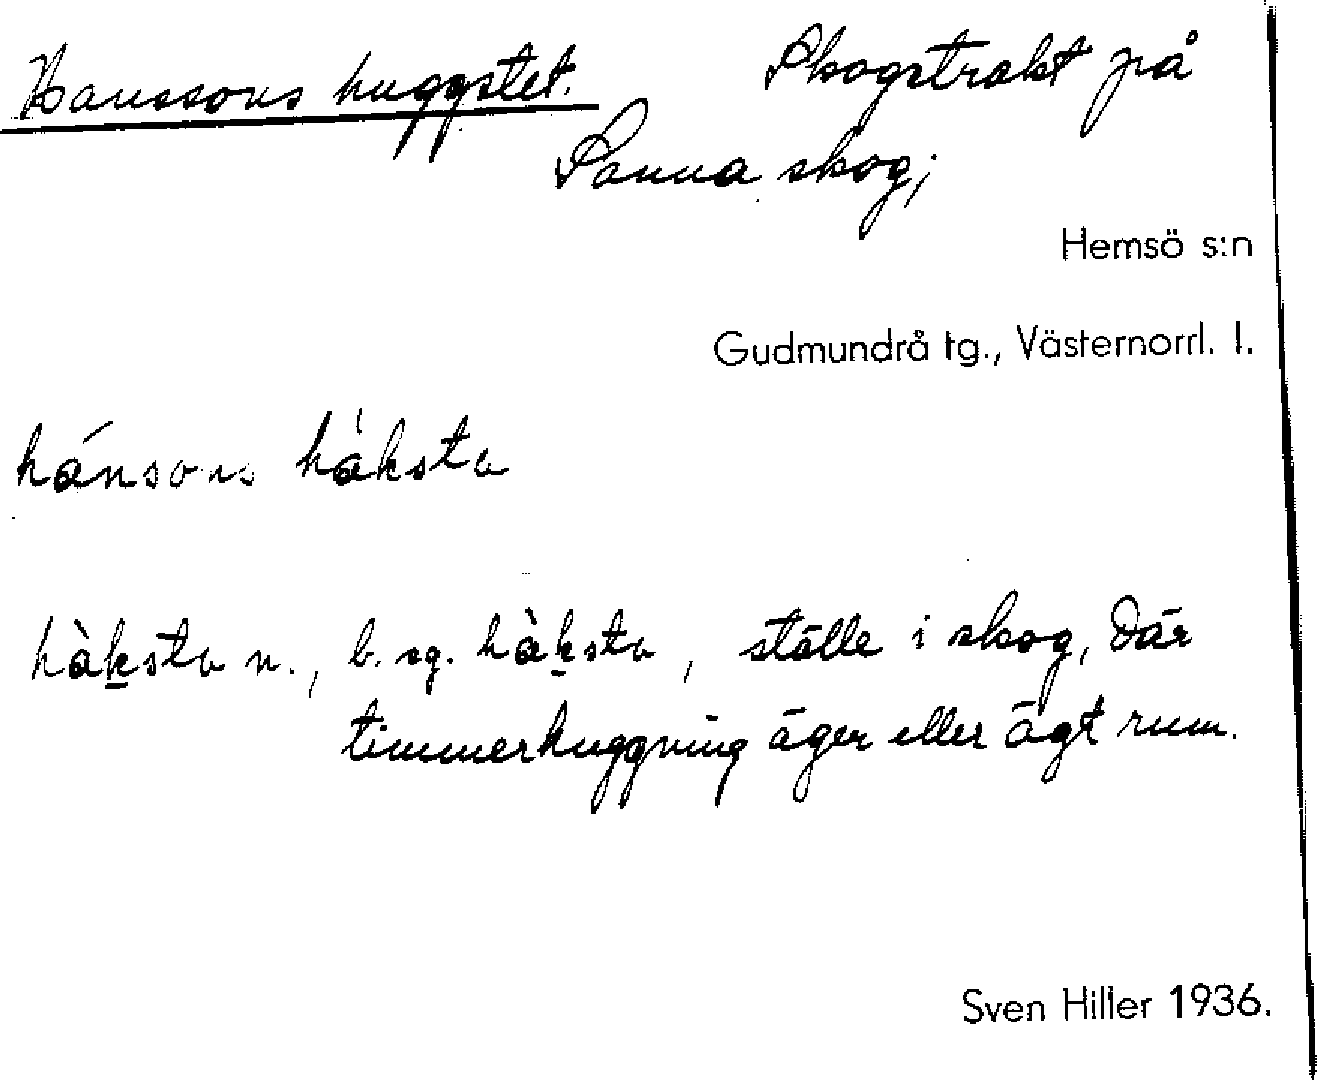 Hanssons huggstet. Skogstrakt på
Sanna skog;
Hemsö s:n
Gudmundrå tg., Västernorrl. l.
hánsons hàksta
hàksta n., b. sg. hàksta, ställe i skog, där
timmerhuggning äger eller ägt rum.
Sven Hiller 1936.